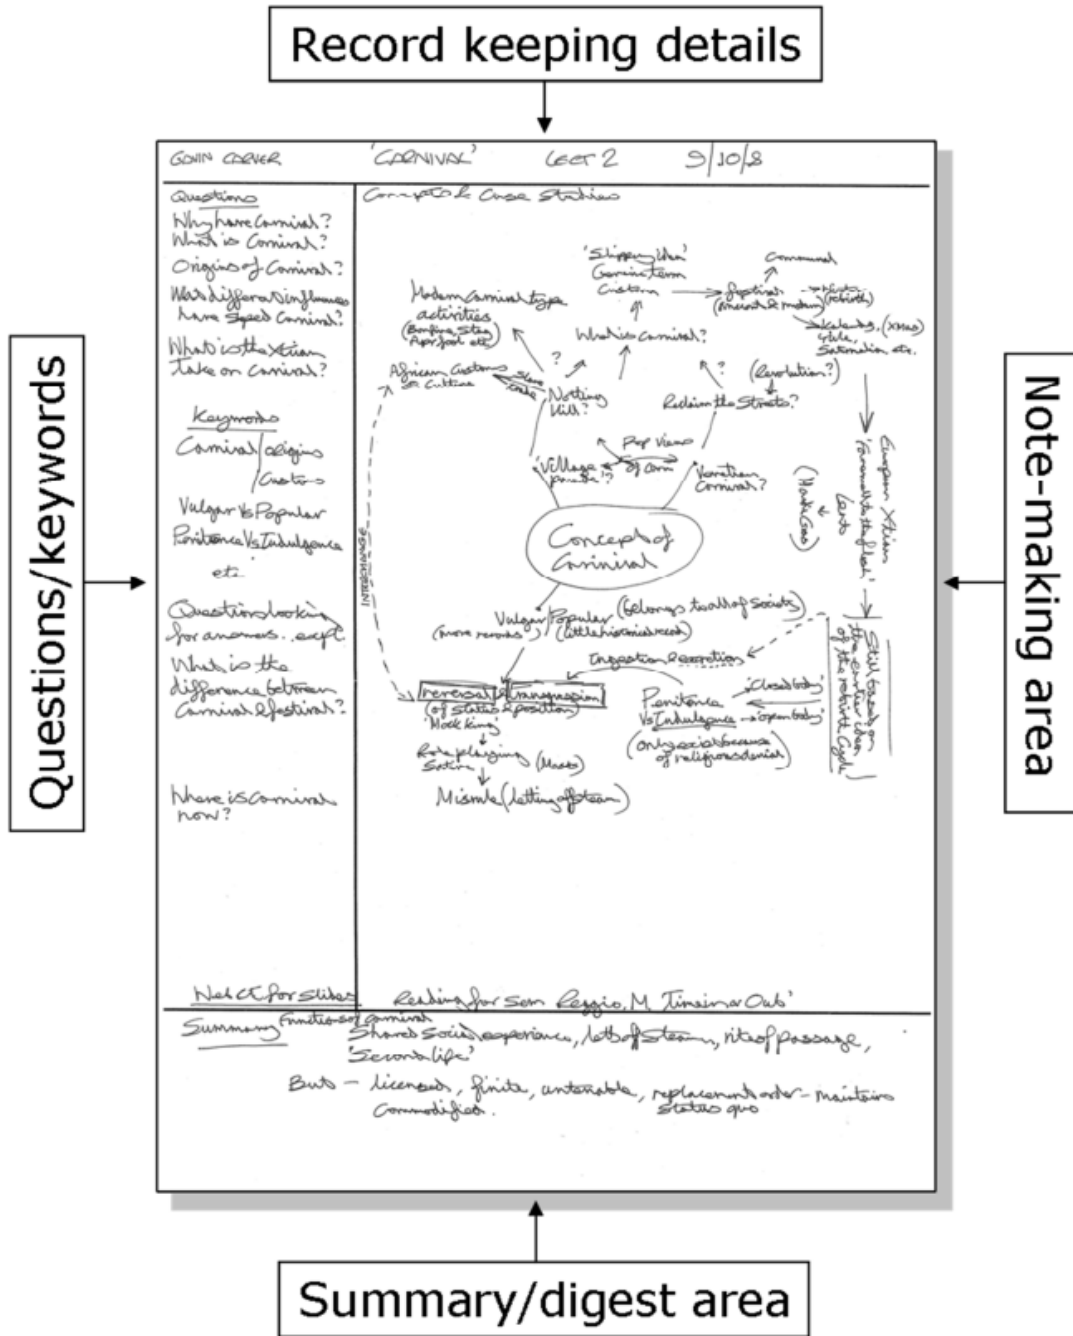 Record keeping details
Questions/keywords
Note-making area
Summary/digest area
GAVIN CARVER 'CARNIVAL' LECT 2 9/10/8
Questions
Why have Carnival?
What is Carnival?
Origins of Carnival?
What different influences
have shaped Carnival?
What is the Xtian
take on Carnival?
Keywords
Carnival origins
Customs
Vulgar Vs Popular
Penitence Vs Indulgence
etc
Questions looking
for answers..
What is the
difference between
Carnival & festival?
Where is Carnival
now?
Concepts & Case Studies
'Slippery Idea'
Generic term
Custom
festival
(ancient & modern)
Communal
(rebirth)
(Xmas)
Yule,
Saturnalia etc.
Modern Carnival type
activities
(Bonfire, Stag
Apr fool etc)
What is Carnival?
African Customs
or Culture
Slave
trade
?
?
?
Notting
Hill?
(Revolution?)
Reclaim the Streets?
Pop Views
of Carn
'Village
parade'?
Venetian
Carnival?
European Xtian
'Farewell to the flesh'
Lent
(Mardi Gras)
INTERCHANGE
Concept of
Carnival
Vulgar/Popular
(more records)
(belongs to all of Society)
(little historical record)
Ingestion & excretion
reversal & transgression
(of status & position)
'Mock King'
Role playing
Satire
Misrule (letting off steam)
Penitence
Vs Indulgence
'Closed body'
'open body'
(only exist because
of religious denial)
Still based on
the earlier idea
of the rebirth Cycle
Web CT for Slides
Reading for Sem Reggio, M 'Time in or Out'
Summary
Functions of carnival
Shared Social experience, lets off Steam, rites of passage,
'Second life'
But – licensed, finite, untenable, replacement order – maintains
Commodified.
Status quo